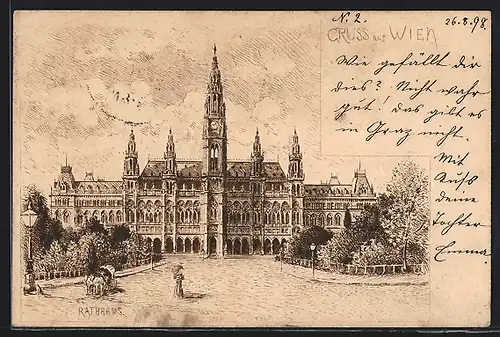 N. 2.
26.8.98.
GRUSS aus WIEN
Wie gefällt dir
dies? Nicht wahr
gut! das gibt es
in Graz nicht.
Mit
Kuss
deine
Tochter
Emma.
RATHHAUS.